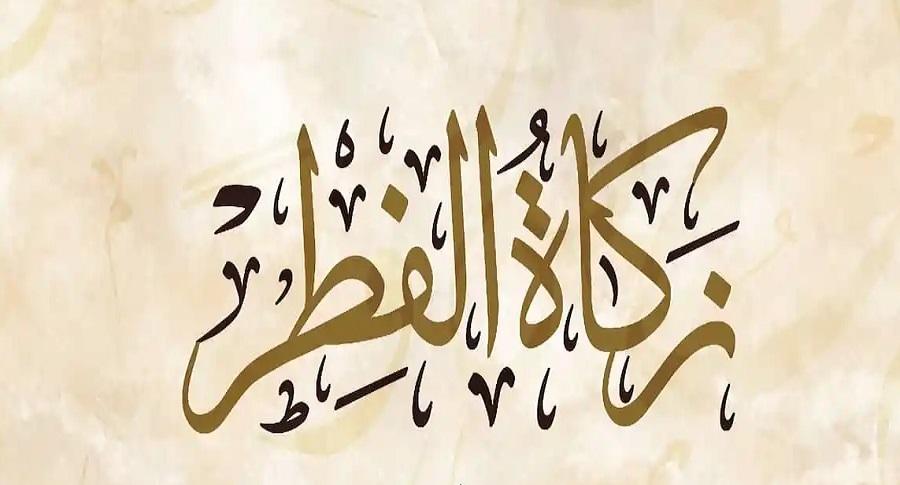 زكاة الفطر